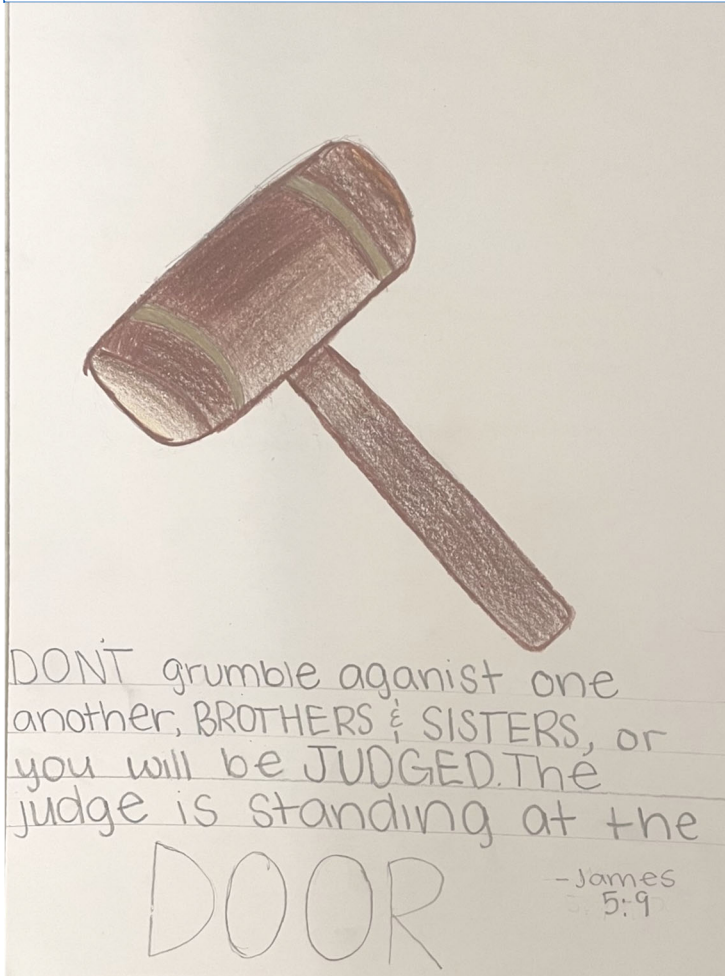 DON'T grumble aganist one
another, BROTHERS & SISTERS, or
you will be JUDGED. The
judge is standing at the
DOOR
-James
5:9